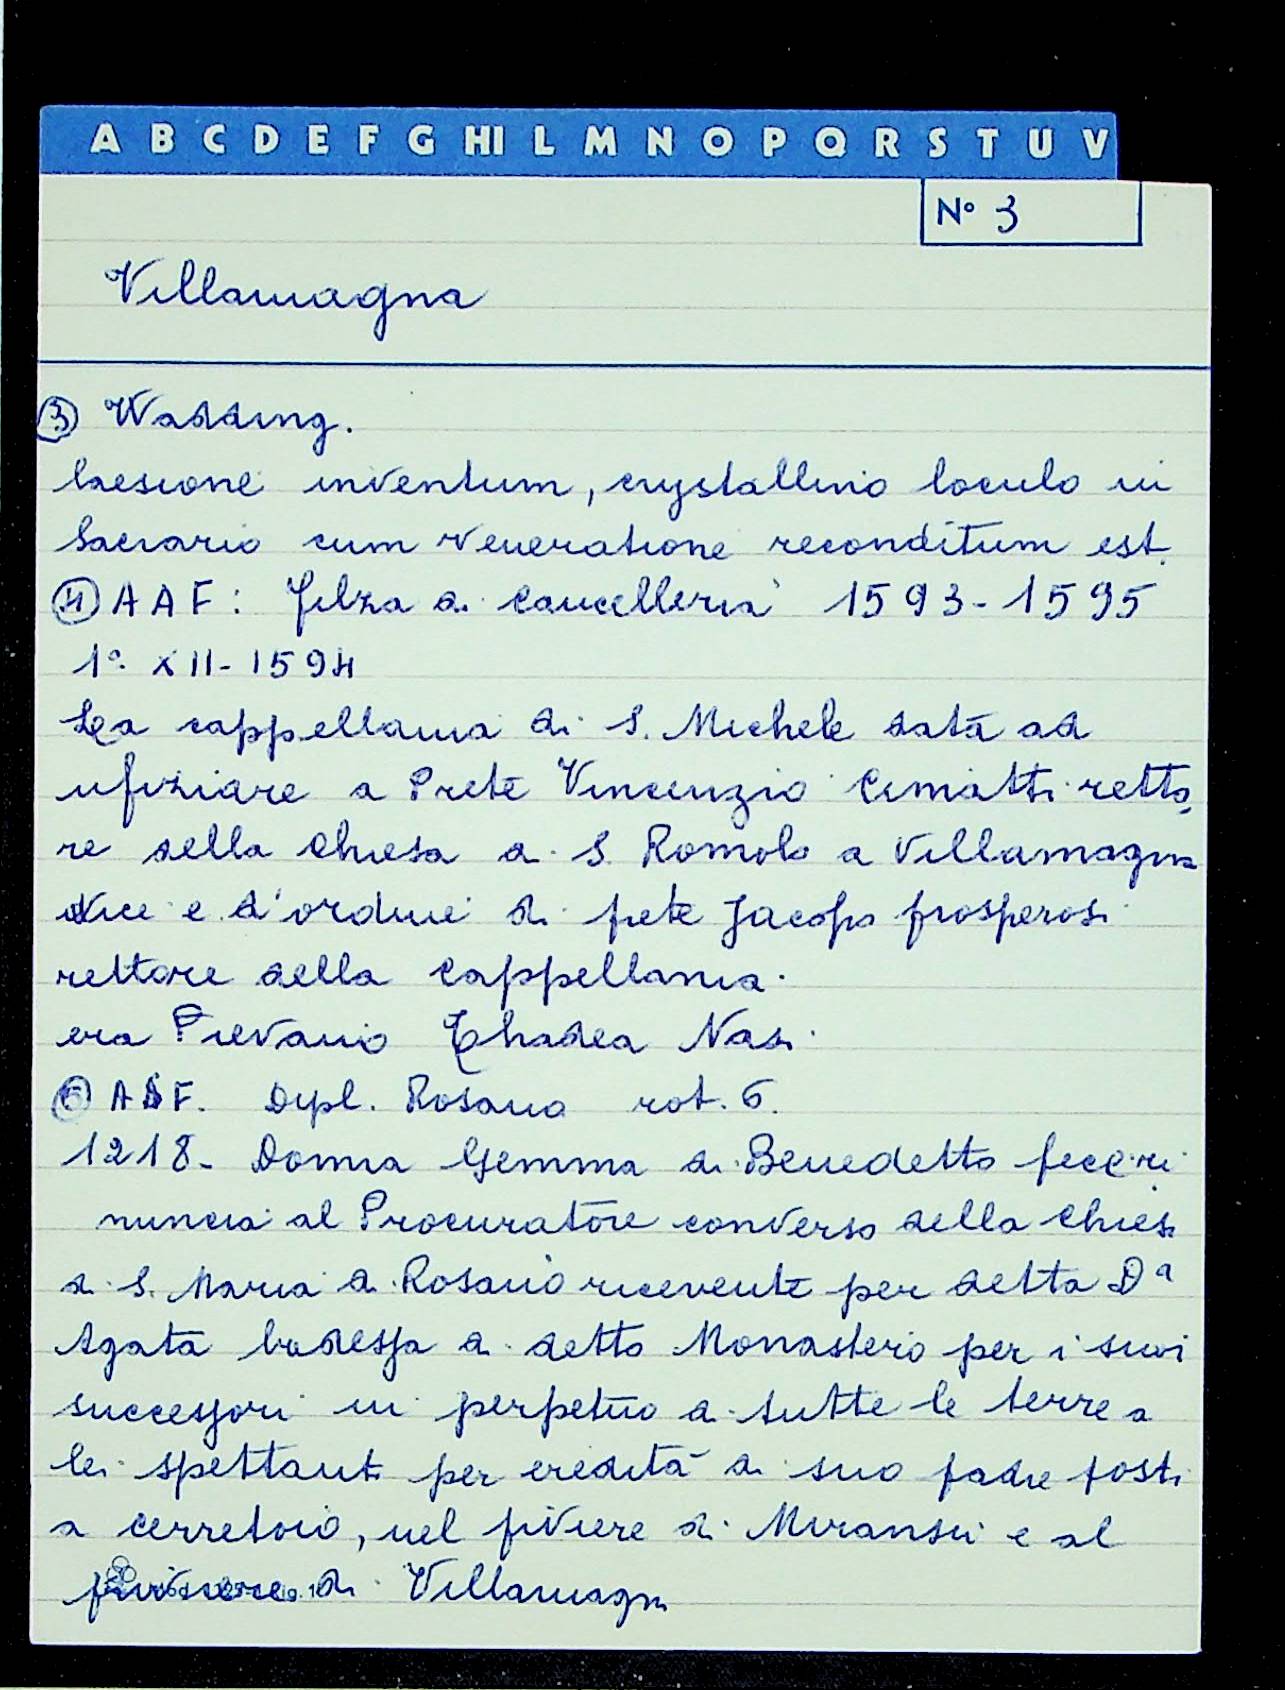 A B C D E F G HI L M N O P Q R S T U V
N° 3
Villamagna
③ Wadding.
laesione inventum, crystallino loculo in
Sacrario cum veneratione reconditum est.
④ A A F: Filza di Cancelleria 1593-1595
1° XII-1594
La cappellania di S. Michele data ad
ufiziare a Prete Vincenzio Cimatti retto
re della Chiesa di S. Romolo a Villamagna
vice e d'ordine di prete Jacopo Prosperosi
rettore della Cappellania.
era Pievano Thadea Nasi
⑤ ASF. Dipl. Rosano rot. 6.
1218- Donna Gemma di Benedetto fece ri
nuncia al Procuratore converso della Chiesa
di S. Maria di Rosano ricevente per detta Dª
Agata badessa di detto Monastero per i suoi
successori in perpetuo di tutte le terre a
lei spettanti per eredità di suo padre posti
a Cerretoio, nel piviere di Miransù e al
piviere di Villamagna